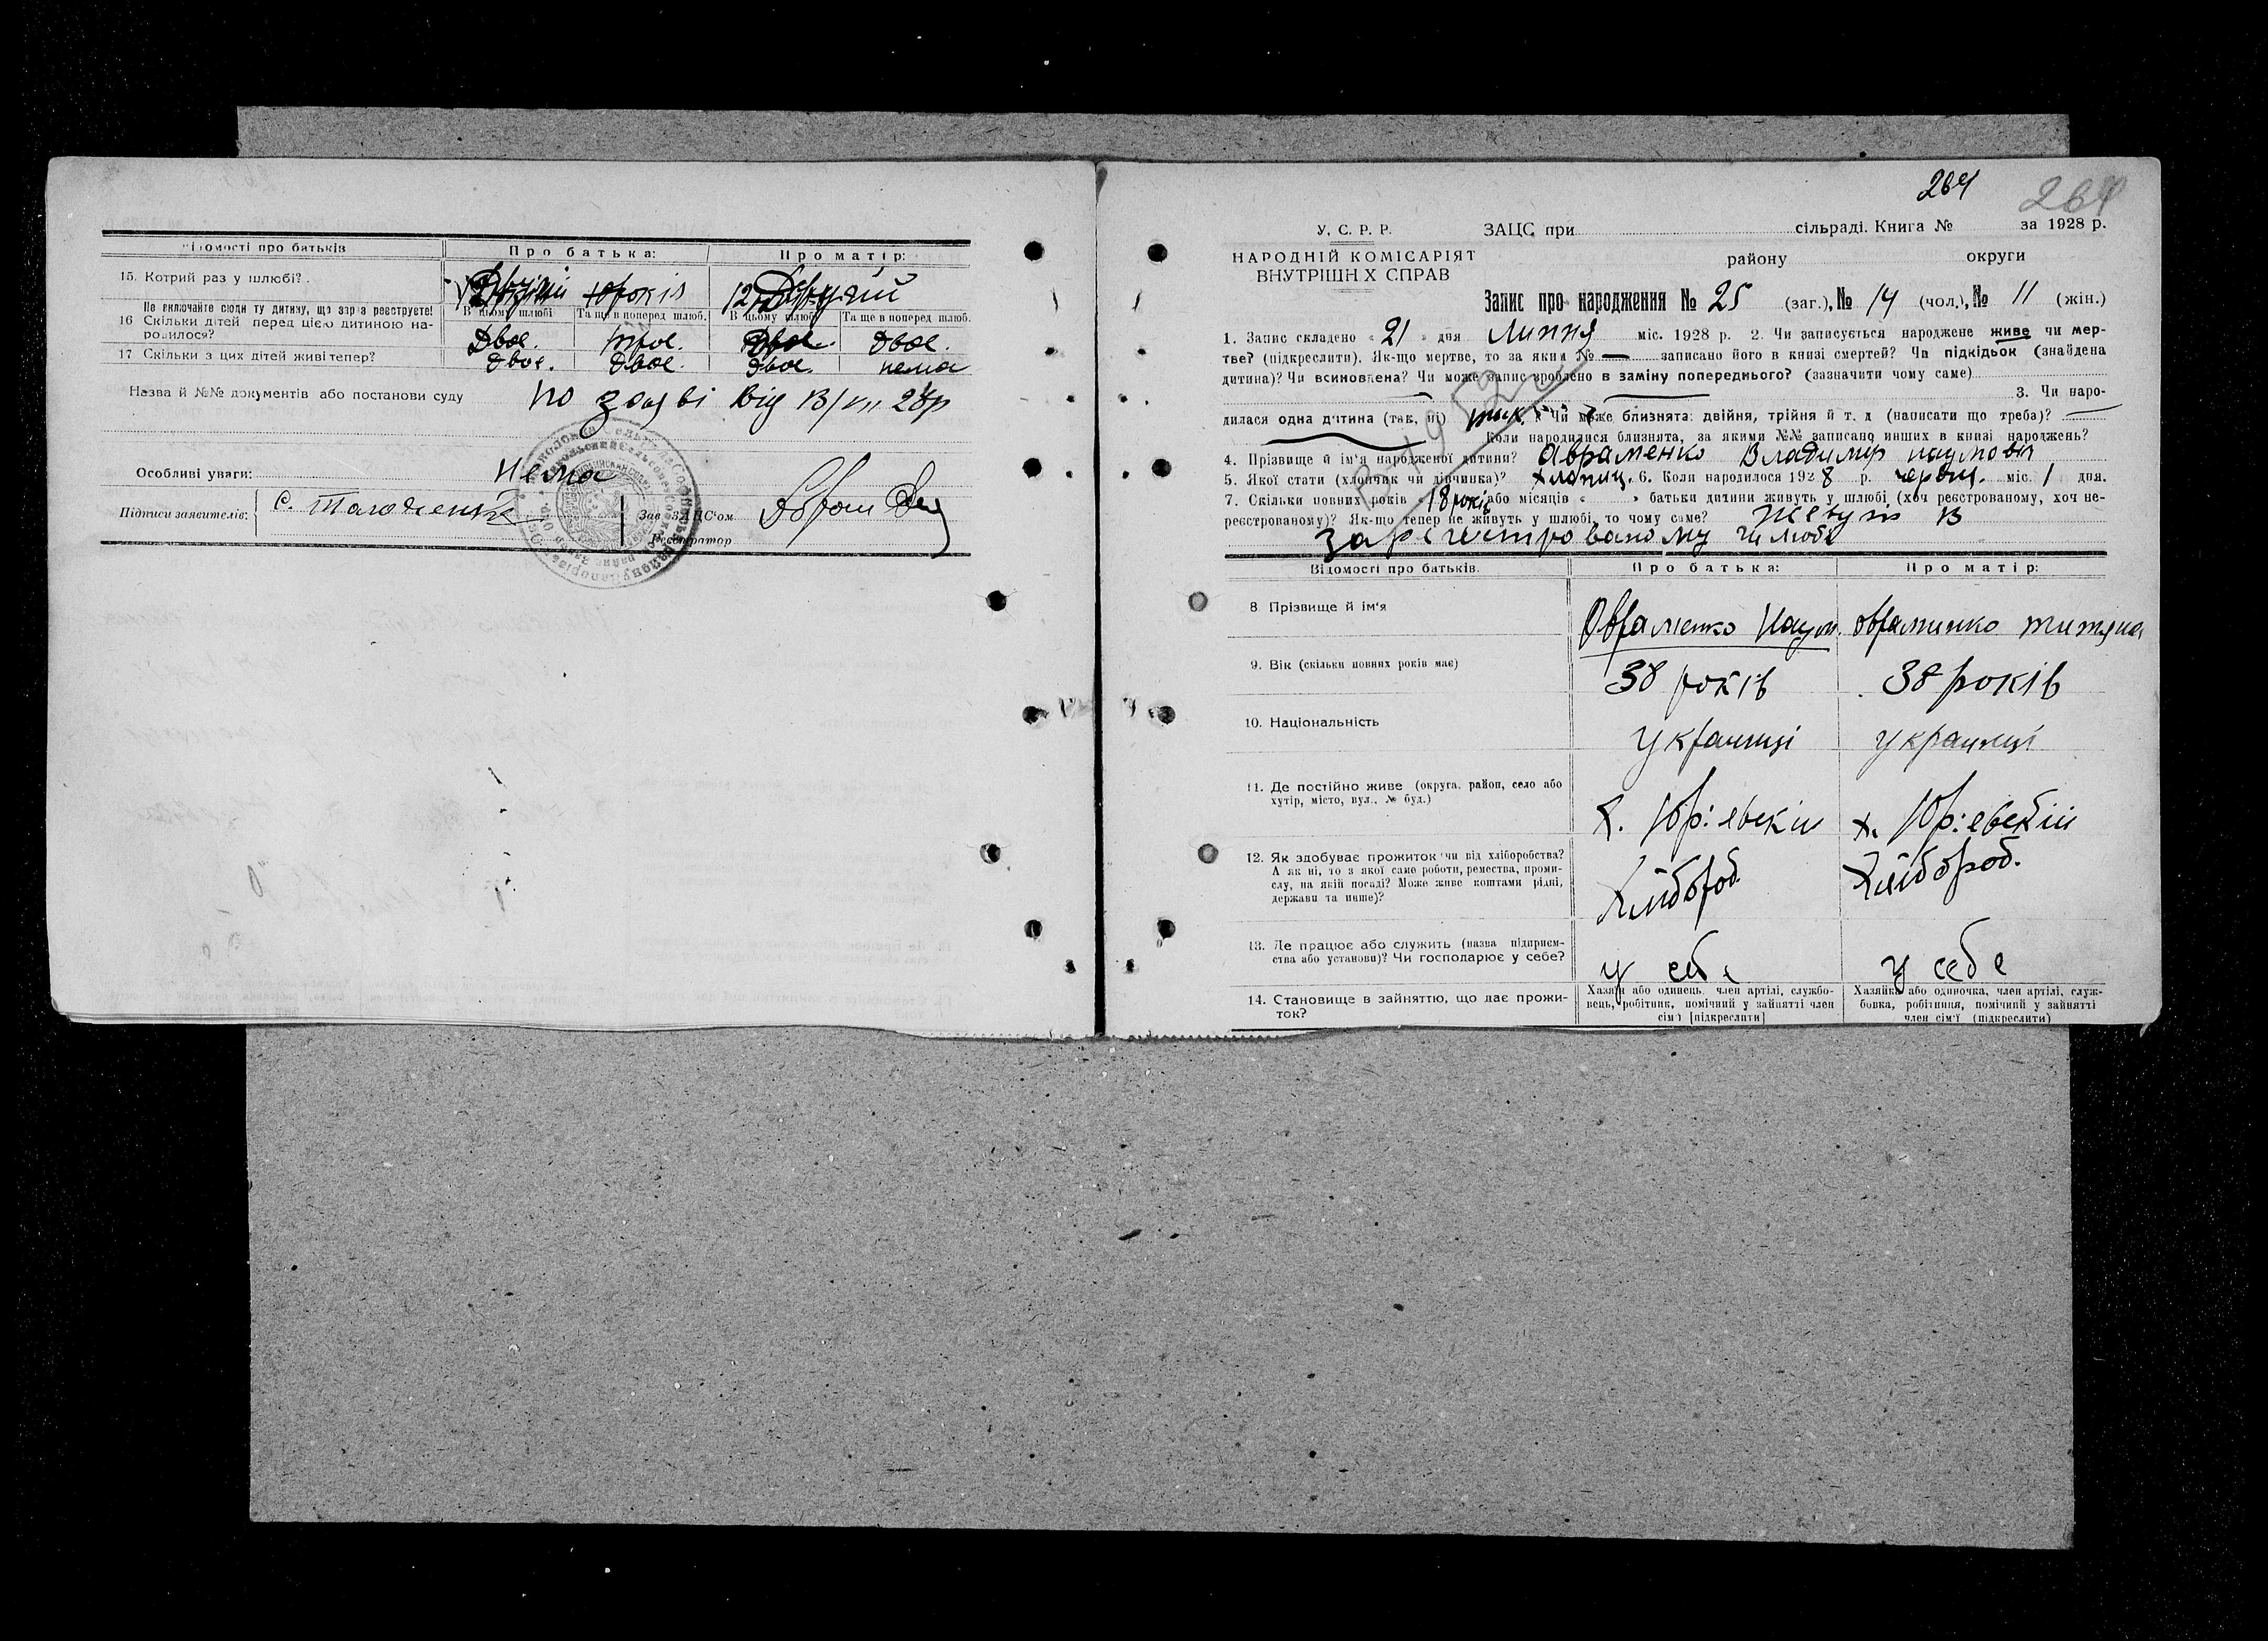 Відомості про батьків
Про батька:
Про матір:
15. Котрий раз у шлюбі?
Другий
років
12
Другий
Не включайте сюди ту дитину, що зараз реєструєте!
16 Скільки дітей перед цією дитиною на-
родилося?
В цьому шлюбі
Та ще в поперед шлюб.
В цьому шлюбі
Та ще в поперед шлюб.
Двоє.
троє.
двоє.
двоє.
17 Скільки з цих дітей живі тепер?
двоє.
двоє.
двоє.
нема
Назва й №№ документів або постанови суду
по заяві від
28р
Особливі уваги:
Нема
Підписи заявителів:
с.
Зав ЗАГС'ом
Реєстратор
264
264
У. С. Р. Р.
НАРОДНІЙ КОМІСАРІЯТ
ВНУТРІШНІХ СПРАВ
ЗАЦС при
сільраді. Книга №
за 1928 р.
району
округи
Запис про народження № 25 (заг.), № 14 (чол.), № 11 (жін.)
1. Запис складено « 21 » дня Липня міс. 1928 р. 2. Чи записується народжене живе чи мер-
тве? (підкреслити). Як-що мертве, то за яким № — записано його в книзі смертей? Чи підкідьок (знайдена
дитина)? Чи всиновлена? Чи може запис зроблено в заміну попереднього? (зазначити чому саме)
3. Чи наро-
дилася одна дитина (так, ні) так. Чи може близнята: двійня, трійня й т. д (написати що треба)? —
Коли народилися близнята, за якими №№ записано инших в книзі народжень?
4. Прізвище й ім'я народженої дитини? Авраменко Владимир наумовіч
5. Якої стати (хлопчик чи дівчинка)? хлопиц. 6. Коли народилося 1928 р. червц. міс. 1 дня.
7. Скільки повних років « 18 років або місяців « » батьки дитини живуть у шлюбі (хоч реєстрованому, хоч не-
реєстрованому)? Як-що тепер не живуть у шлюбі, то чому саме? Живуть в
зарегистровано му шлюбі
Відомості про батьків.
Про батька:
Про матір:
8 Прізвище й ім'я
Овраменко Наум.
Овраминко титяна
9. Вік (скільки повних років має)
38 років
38 років
10. Національність
украинці
украинці
11. Де постійно живе (округа, район, село або
хутір, місто, вул., № буд.)
х. Юрієвскій
х. Юрієвскій
12. Як здобуває прожиток чи від хліборобства?
А як ні, то з якої саме роботи, ремества, проми-
слу, на якій посаді? Може живе коштами рідні,
держави та инше)?
Хлібороб.
Хлібороб.
13. Де працює або служить (назва підприєм-
ства або установи)? Чи господарює у себе?
у себе
у себе
14. Становище в зайняттю, що дає прожи-
ток?
Хазяїн або одинець, член артілі, службо-
вець, робітник, помічний у зайнятті член
сім'ї [підкреслити]
Хазяйка або одиночка, член артілі, служ-
бовка, робітниця, помічний у зайнятті
член сім'ї (підкреслити)